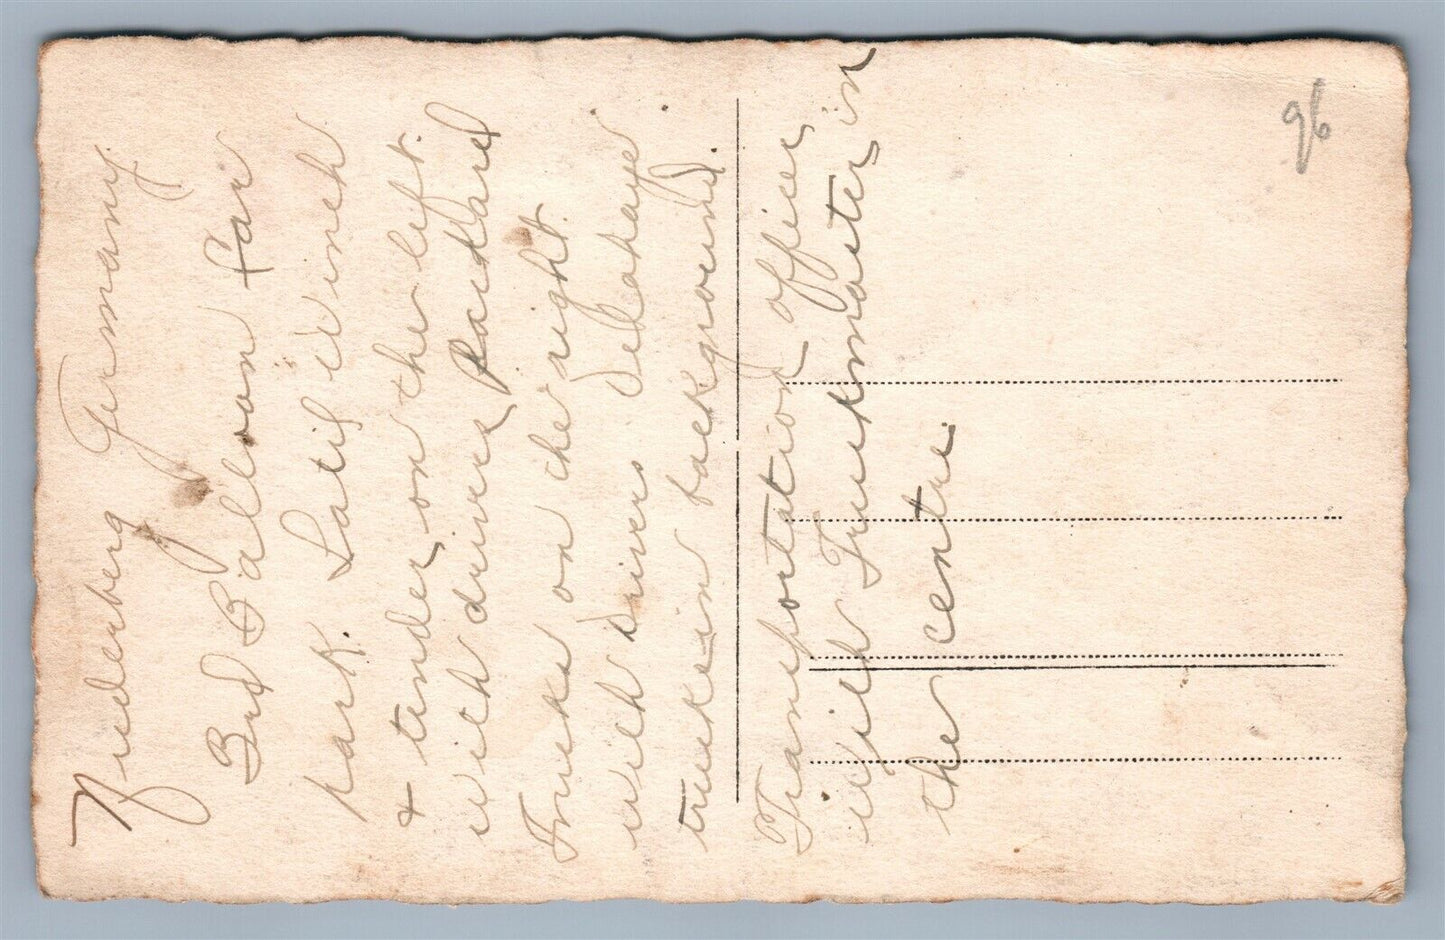 Niederberg Germany
3rd Balloon far
park. Latil winch
+ tender on the left.
with drivers Packard
Trucks on the right
with Drivers Delahaye
trucks in background.
Transportation officer
with Truckmaster in
the centre.
96